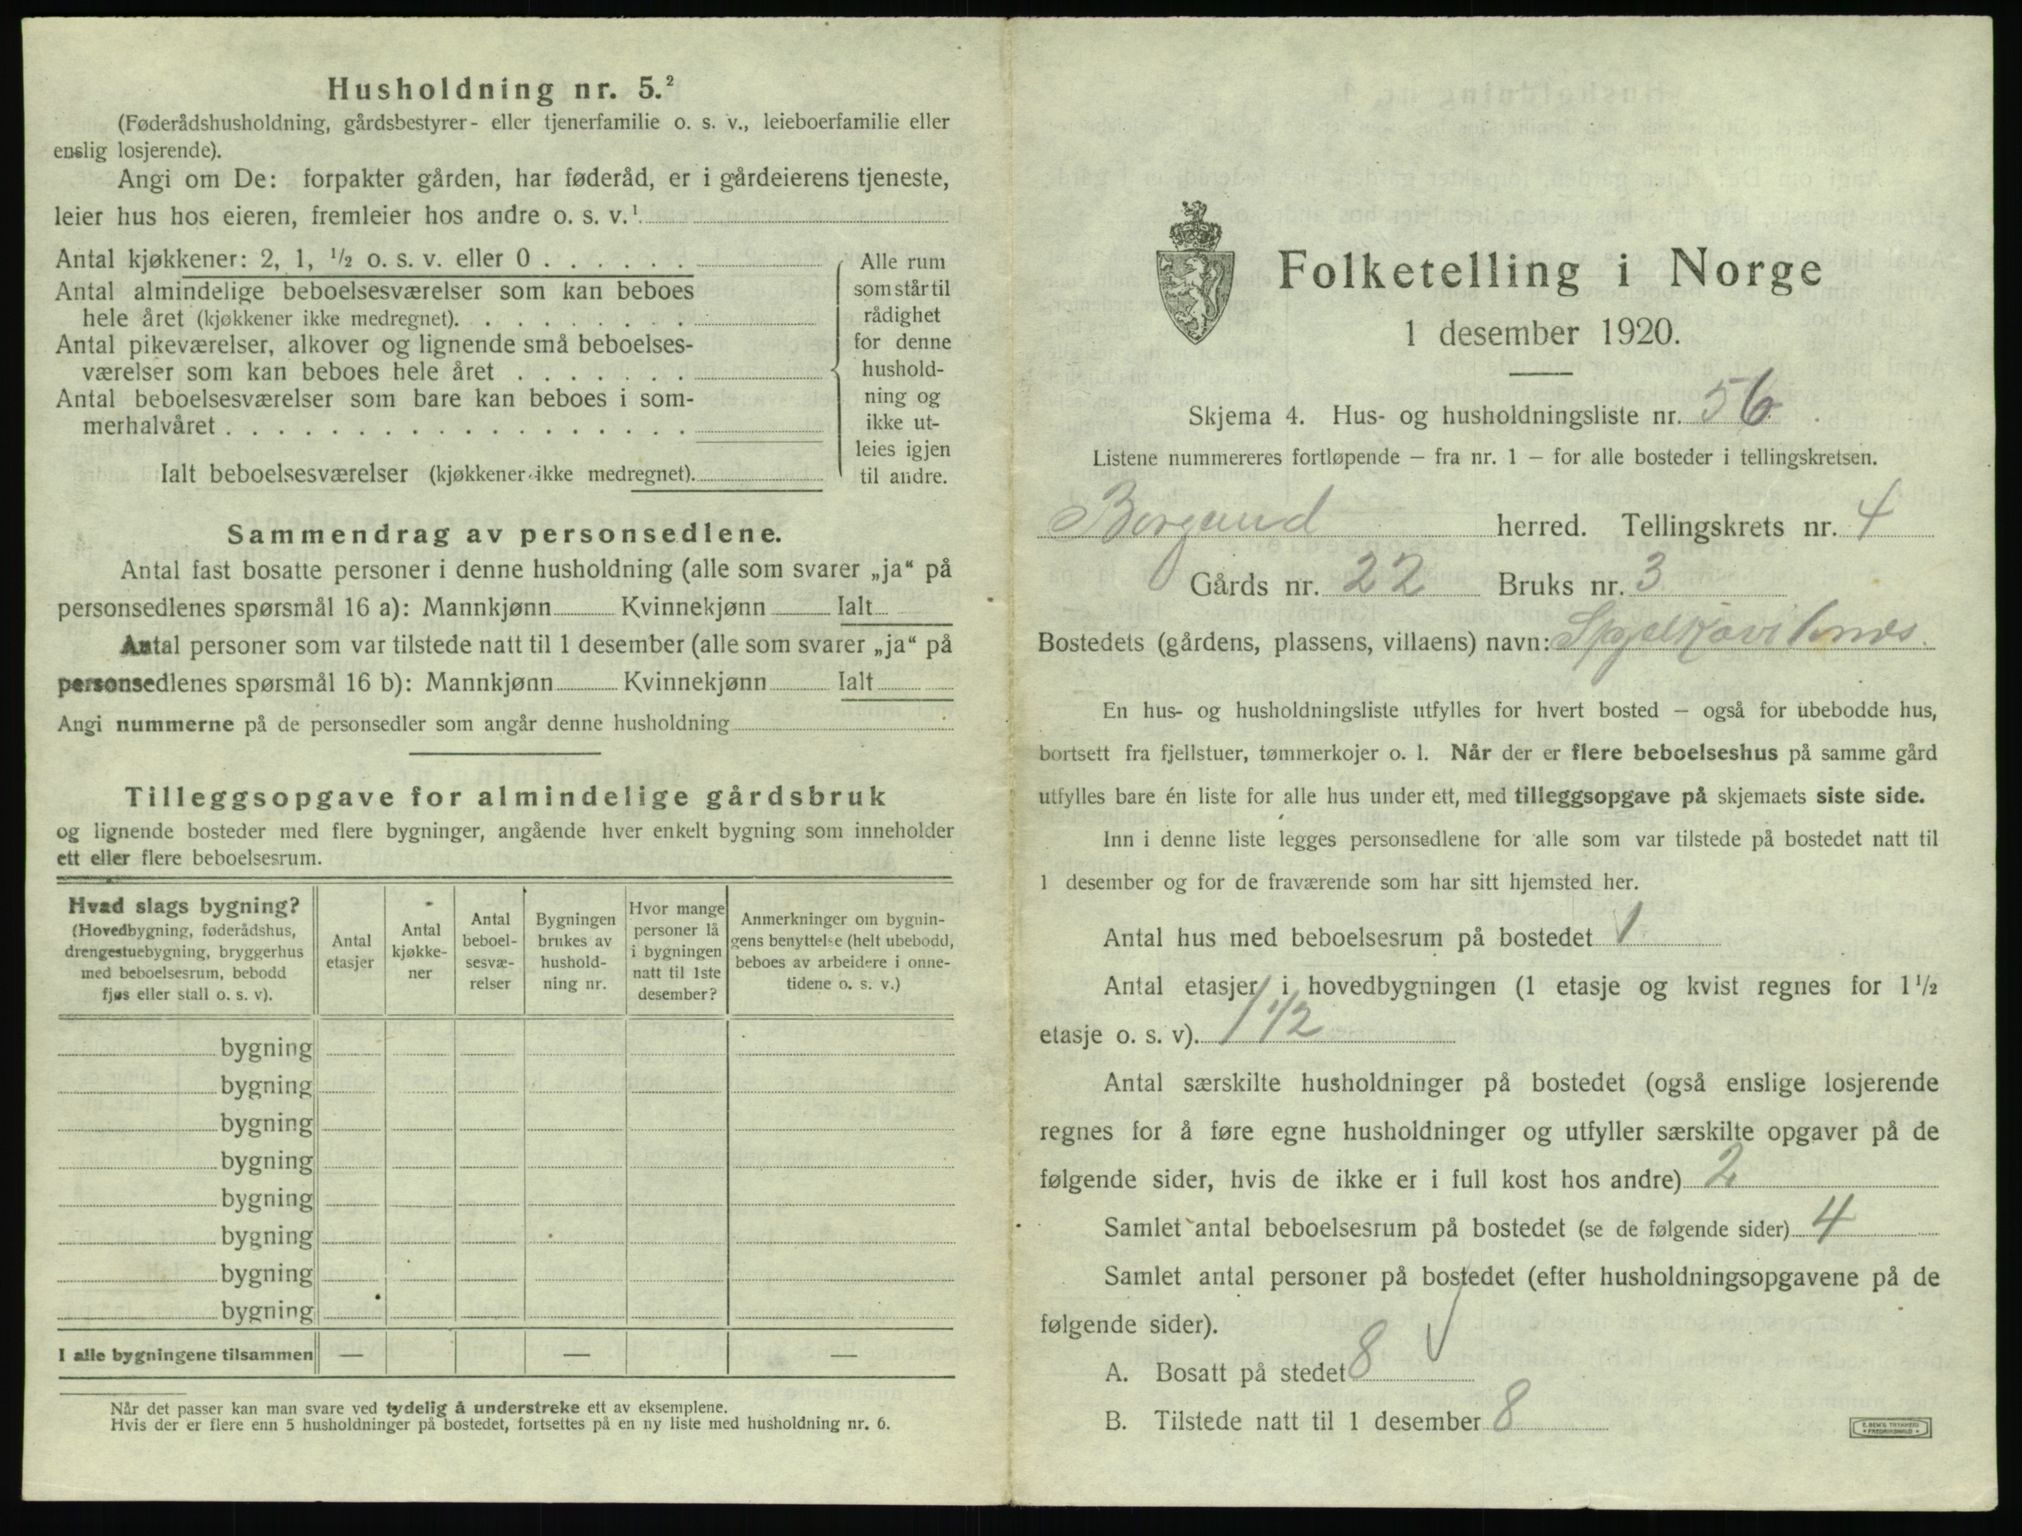 Husholdning nr. 5.²
(Føderådshusholdning, gårdsbestyrer- eller tjenerfamilie o. s. v., leieboerfamilie eller
enslig losjerende).
Angi om De: forpakter gården, har føderåd, er i gårdeierens tjeneste,
leier hus hos eieren, fremleier hos andre o. s. v.¹
Antal kjøkkener: 2, 1, ½ o. s. v. eller 0 . . . . . .
Antal almindelige beboelsesværelser som kan beboes
hele året (kjøkkener ikke medregnet). . . . . . . . .
Antal pikeværelser, alkover og lignende små beboelses-
værelser som kan beboes hele året . . . . . . .
Antal beboelsesværelser som bare kan beboes i som-
merhalvåret . . . . . . . . . . . . . . . . . .
Ialt beboelsesværelser (kjøkkener ikke medregnet).
Alle rum
som står til
rådighet
for denne
hushold-
ning og
ikke ut-
leies igjen
til andre.
Sammendrag av personsedlene.
Antal fast bosatte personer i denne husholdning (alle som svarer „ja“ på
personsedlenes spørsmål 16 a): Mannkjønn Kvinnekjønn Ialt
Antal personer som var tilstede natt til 1 desember (alle som svarer „ja“ på
personsedlenes spørsmål 16 b): Mannkjønn Kvinnekjønn Ialt
Angi nummerne på de personsedler som angår denne husholdning
Tilleggsopgave for almindelige gårdsbruk
og lignende bosteder med flere bygninger, angående hver enkelt bygning som inneholder
ett eller flere beboelsesrum.
Hvad slags bygning?
(Hovedbygning, føderådshus,
drengestuebygning, bryggerhus
med beboelsesrum, bebodd
fjøs eller stall o. s. v).
Antal
etasjer
Antal
kjøkke-
ner
Antal
beboel-
sesvæ-
relser
Bygningen
brukes av
hushold-
ning nr.
Hvor mange
personer lå
i bygningen
natt til 1ste
desember?
Anmerkninger om bygnin-
gens benyttelse (helt ubebodd,
beboes av arbeidere i onne-
tidene o. s. v.)
bygning
bygning
bygning
bygning
bygning
bygning
bygning
bygning
I alle bygningene tilsammen — — —
Når det passer kan man svare ved tydelig å understreke ett av eksemplene.
Hvis der er flere enn 5 husholdninger på bostedet, fortsettes på en ny liste med husholdning nr. 6.
Folketelling i Norge
1 desember 1920.
Skjema 4. Hus- og husholdningsliste nr. 56
Listene nummereres fortløpende — fra nr. 1 — for alle bosteder i tellingskretsen.
Borgund herred. Tellingskrets nr. 4
Gårds nr. 22 Bruks nr. 3
Bostedets (gårdens, plassens, villaens) navn: Spjelkaviknes
En hus- og husholdningsliste utfylles for hvert bosted — også for ubebodde hus,
bortsett fra fjellstuer, tømmerkojer o. l. Når der er flere beboelseshus på samme gård
utfylles bare én liste for alle hus under ett, med tilleggsopgave på skjemaets siste side.
Inn i denne liste legges personsedlene for alle som var tilstede på bostedet natt til
1 desember og for de fraværende som har sitt hjemsted her.
Antal hus med beboelsesrum på bostedet 1
Antal etasjer i hovedbygningen (1 etasje og kvist regnes for 1½
etasje o. s. v). 1 1/2
Antal særskilte husholdninger på bostedet (også enslige losjerende
regnes for å føre egne husholdninger og utfyller særskilte opgaver på de
følgende sider, hvis de ikke er i full kost hos andre) 2
Samlet antal beboelsesrum på bostedet (se de følgende sider) 4
Samlet antal personer på bostedet (efter husholdningsopgavene på de
følgende sider).
A. Bosatt på stedet 8 √
B. Tilstede natt til 1 desember 8